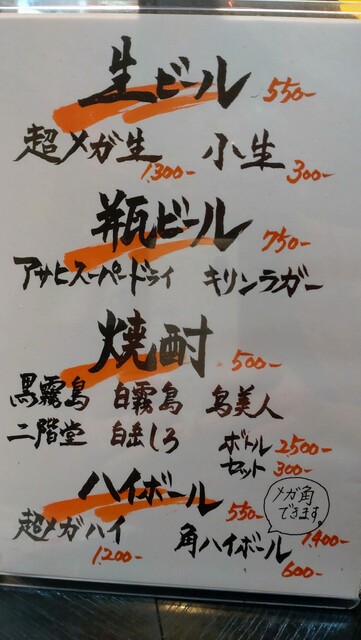 生ビール 550-
超メガ生 1,300- 小生 300-
瓶ビール 750-
アサヒスーパードライ キリンラガー
焼酎 500-
黒霧島 白霧島 島美人
二階堂 白岳しろ ボトル 2500-
セット 300-
ハイボール 550-
メガ角できます。
超メガハイ 1,200- 角ハイボール 1,400-
600-